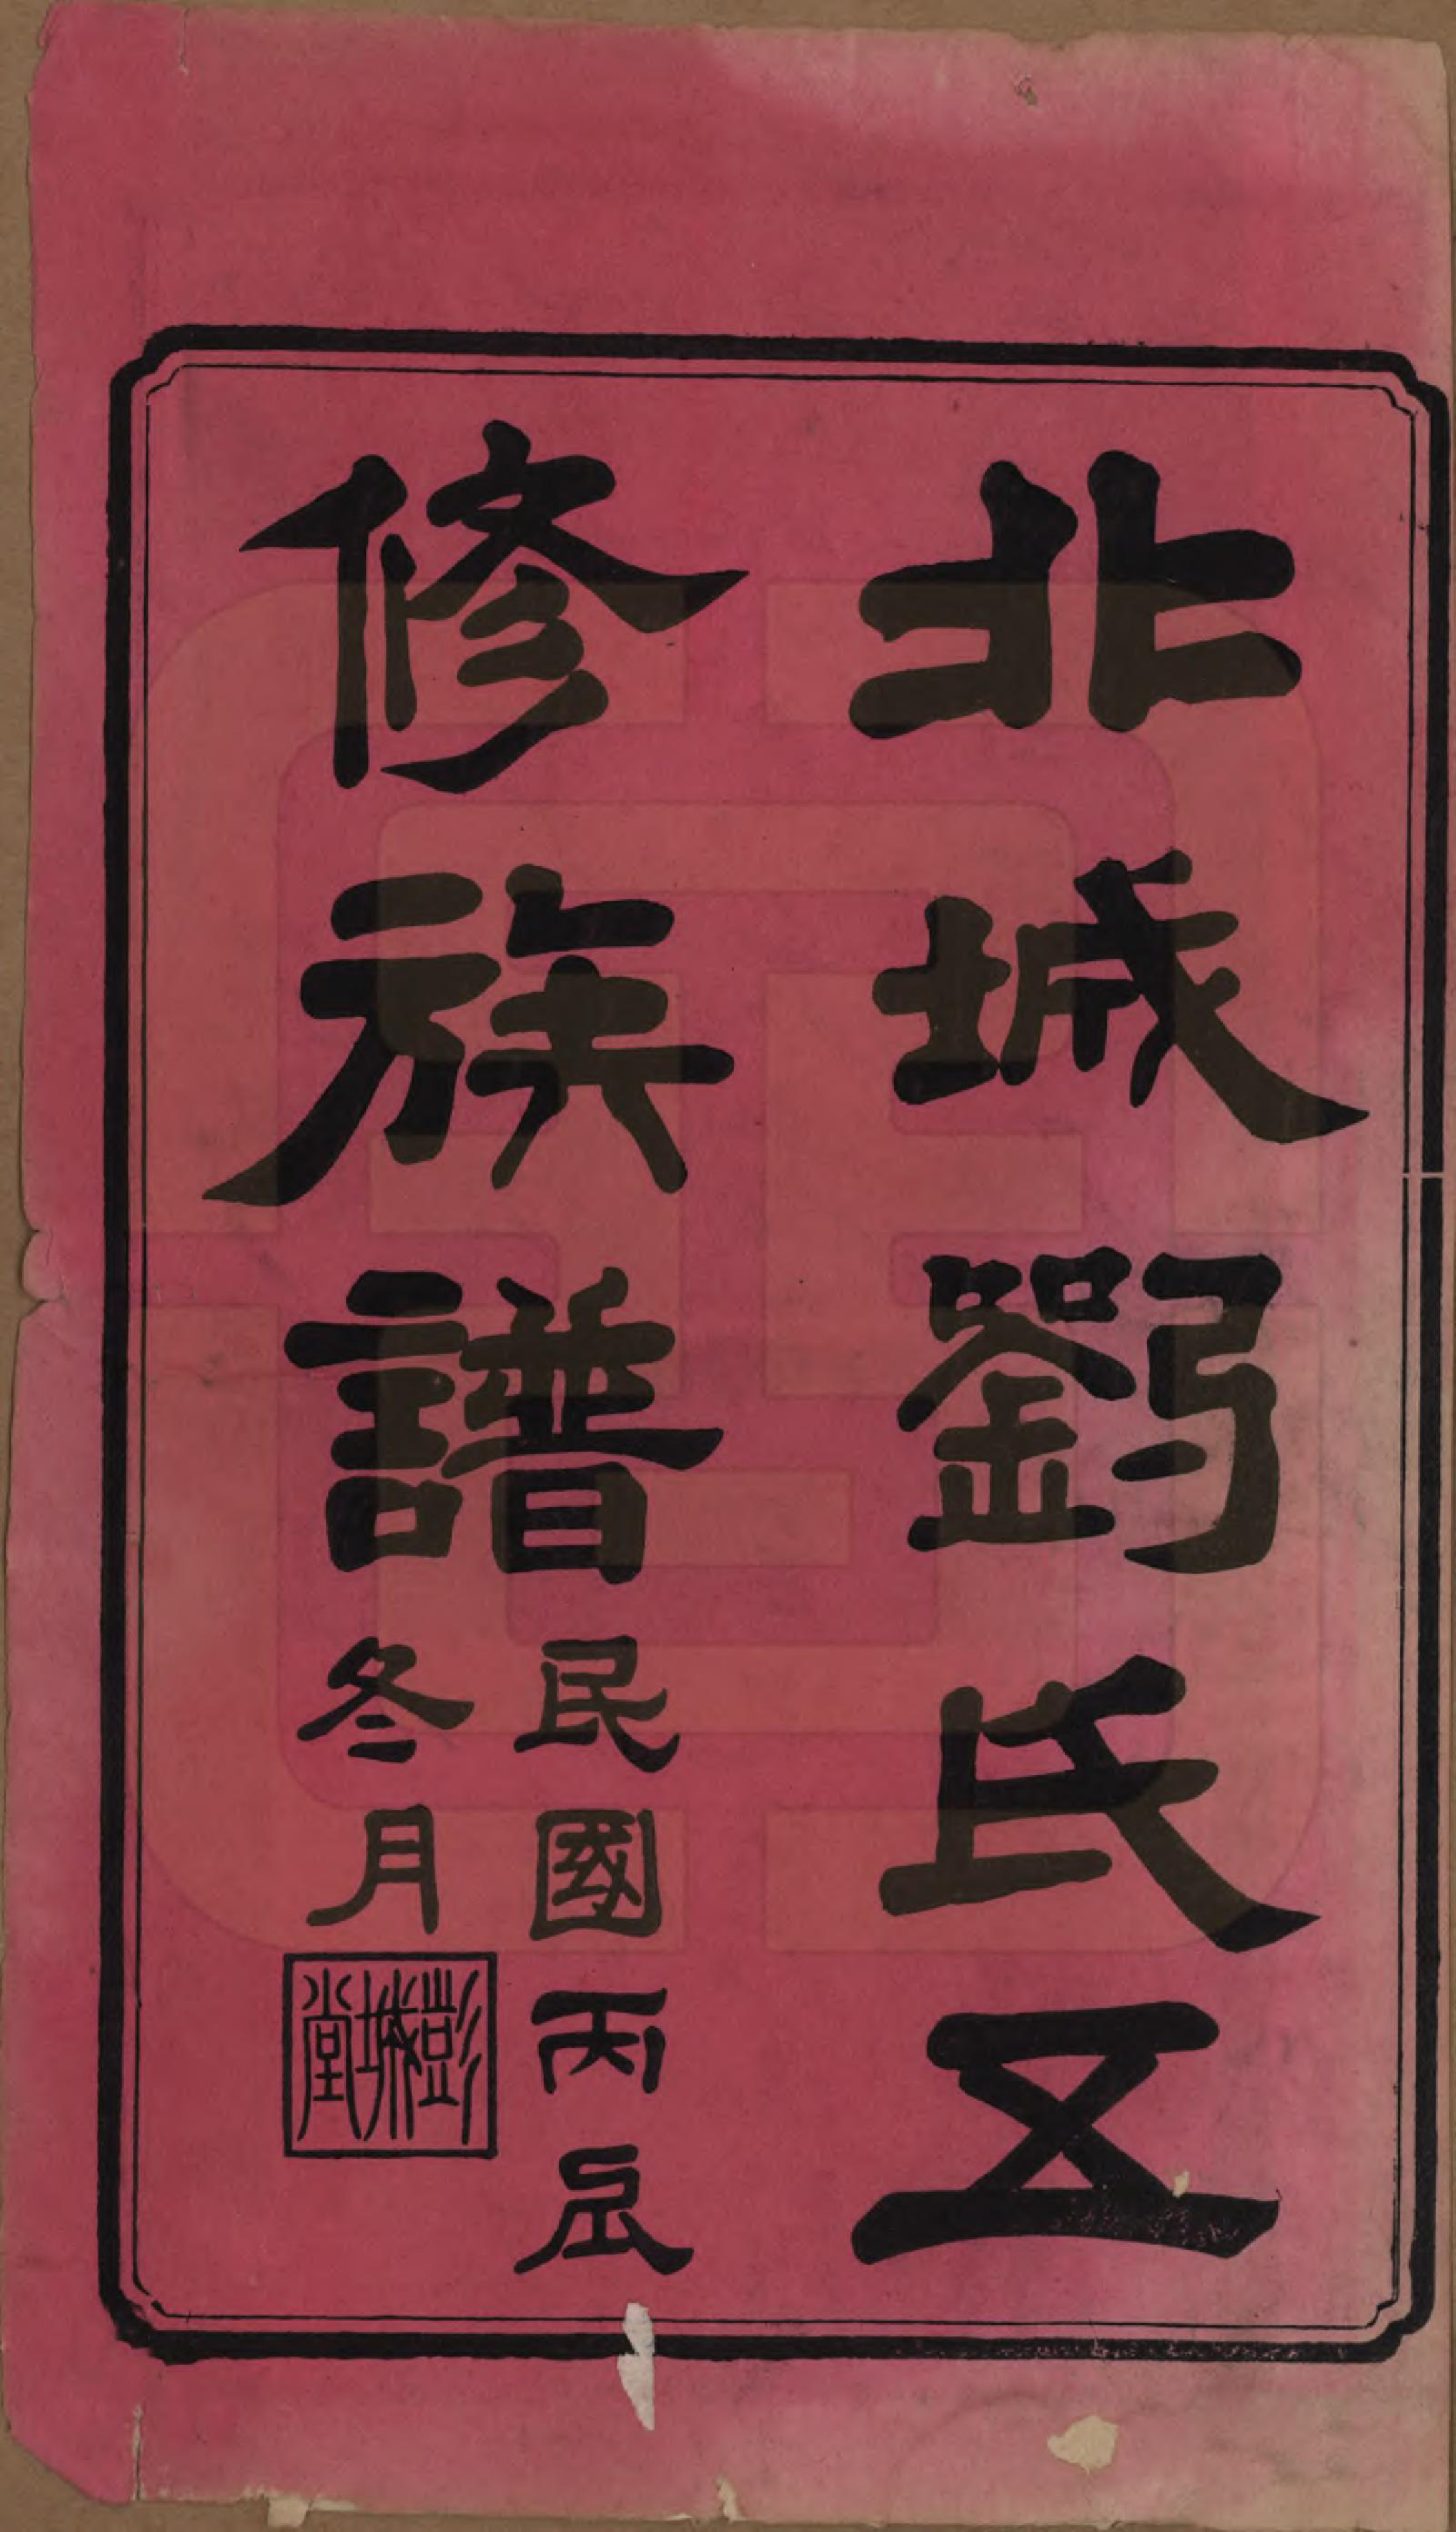 北城劉氏五
修族譜
民國丙辰
冬月
彭城堂